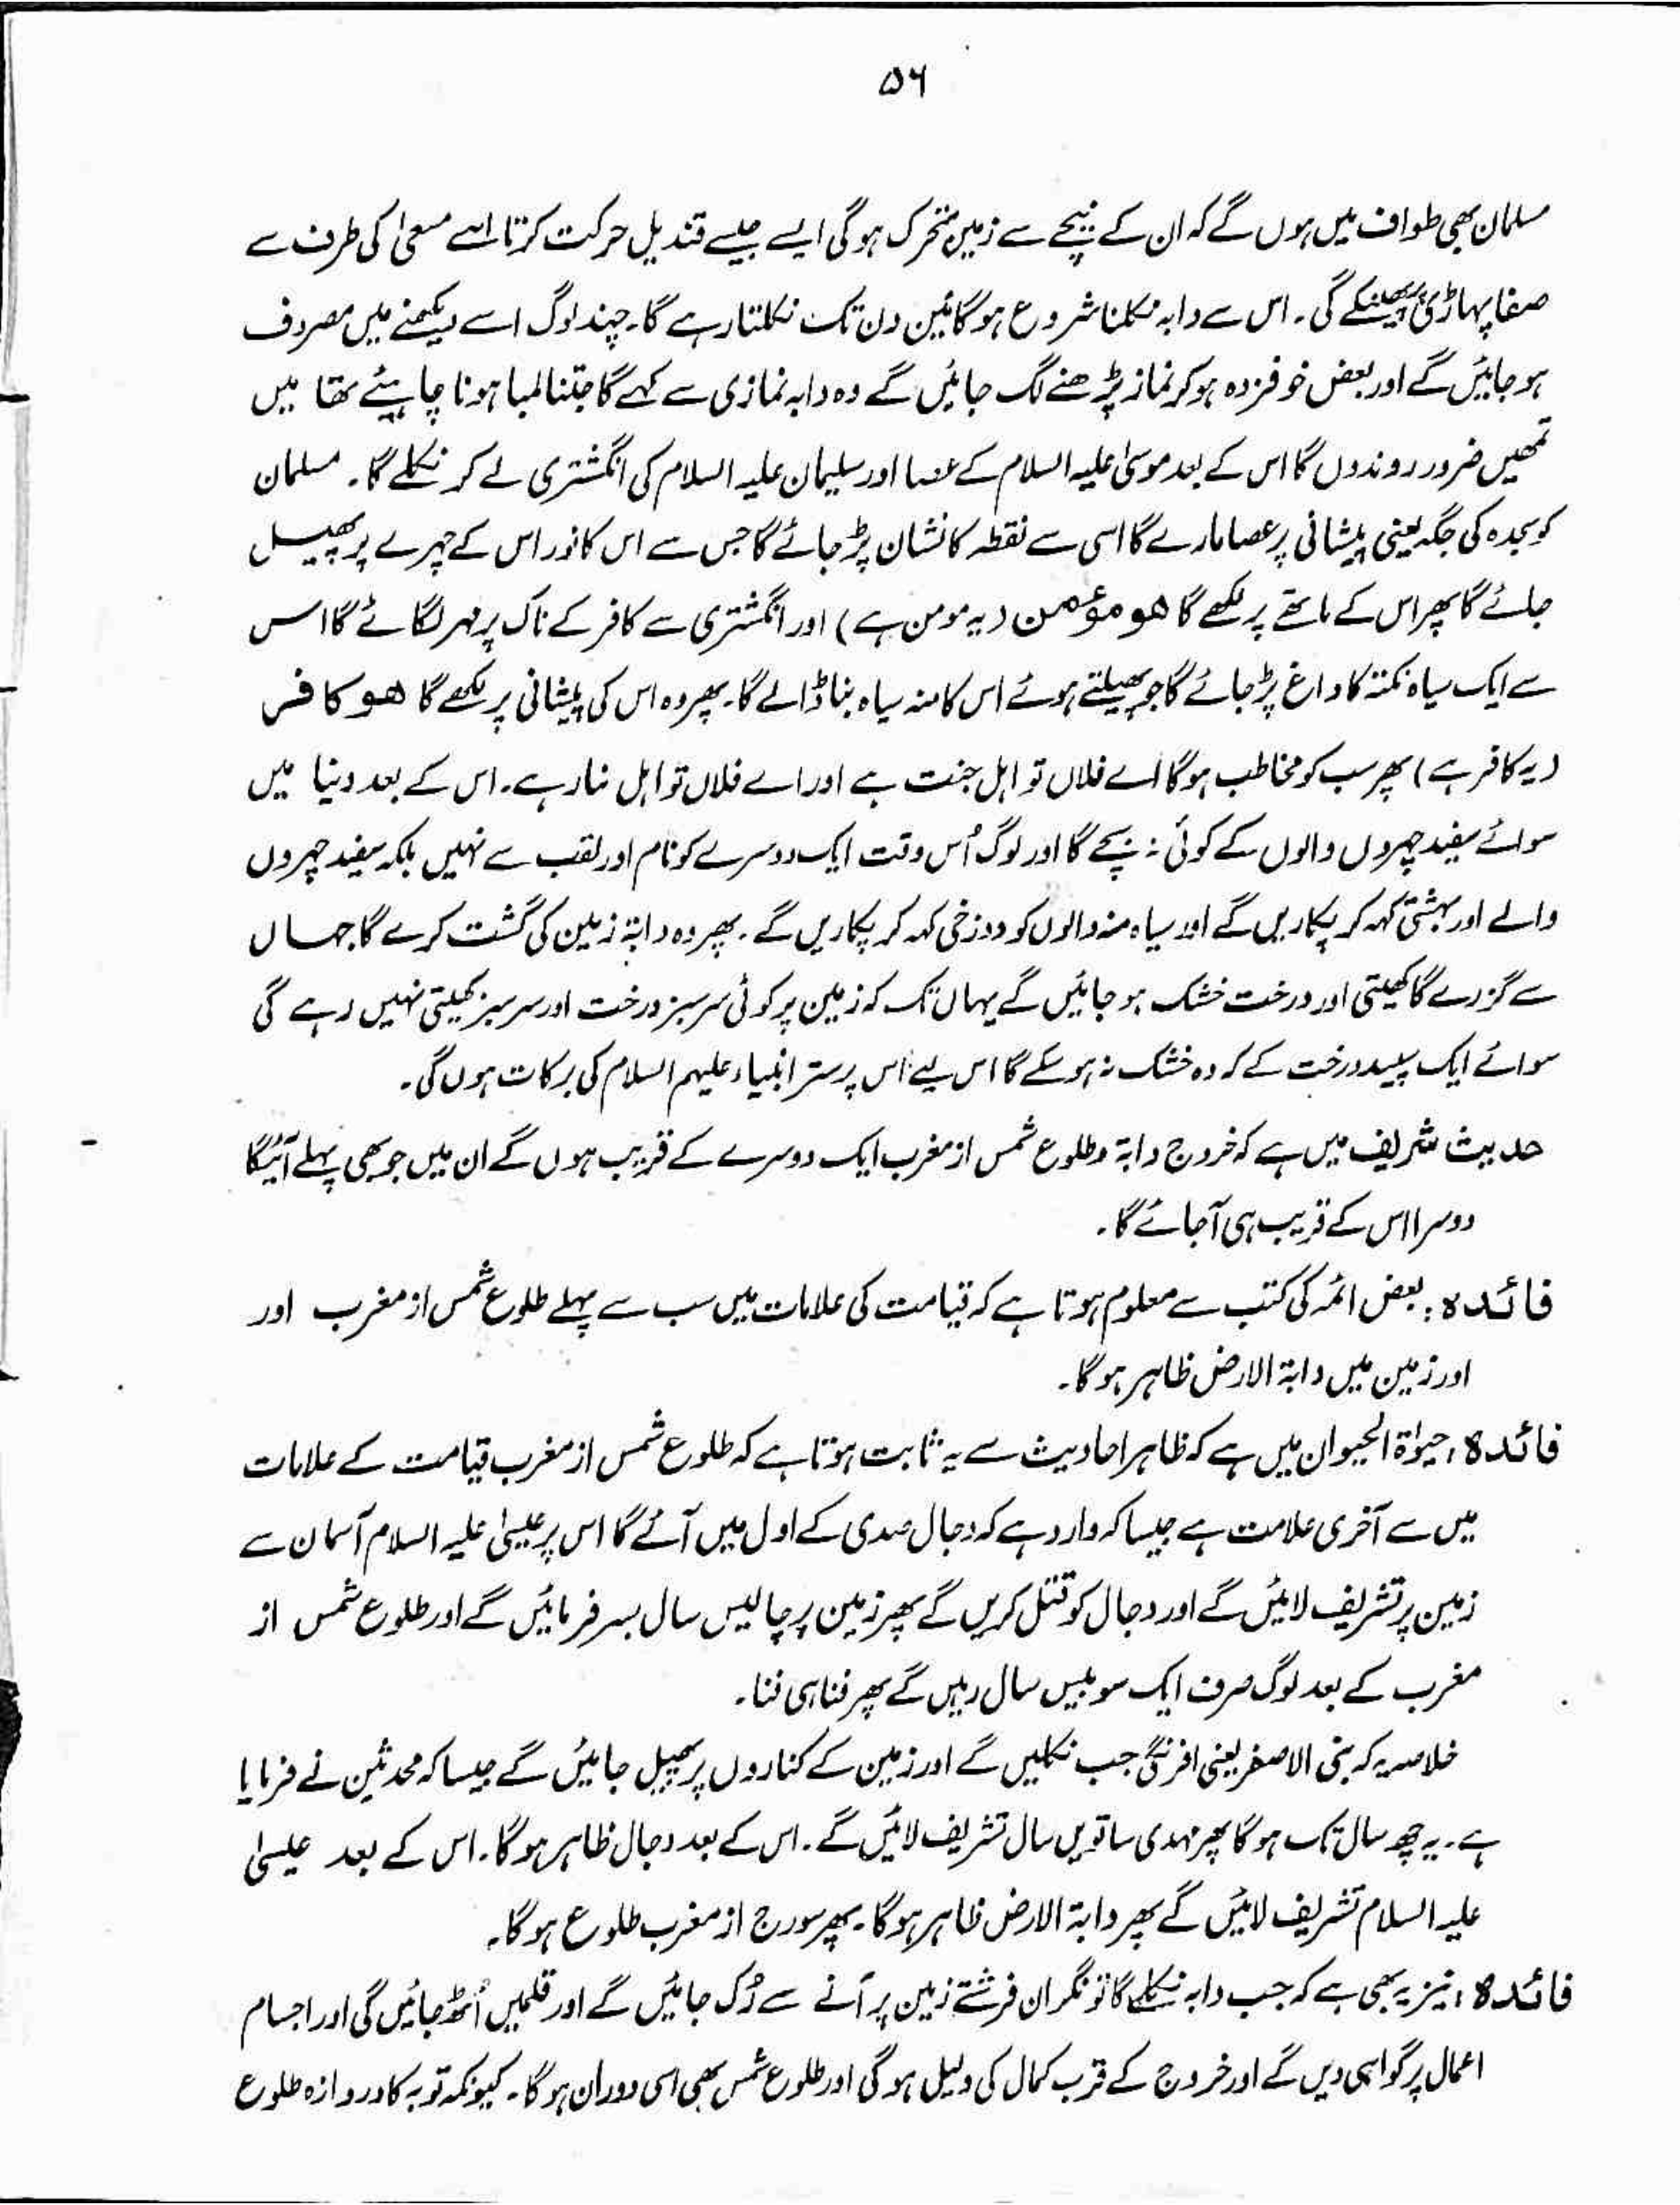 ۵۶
مسلمان بھی طواف میں ہوں گے کہ ان کے نیچے سے زمین متحرک ہوگی ایسے جیسے قندیل حرکت کرتا اسے مسعیٰ کی طرف سے
صفا پہاڑی پھینکے گی۔ اس سے دابہ نکلنا شروع ہوگا تین دن تک نکلتا رہے گا۔ چند لوگ اسے دیکھنے میں مصروف
ہوجائیں گے اور بعض خوفزدہ ہوکر نماز پڑھنے لگ جائیں گے وہ دابہ نمازی سے کہے گا جتنا لمبا ہونا چاہیئے تھا میں
تمھیں ضرور روندوں گا اس کے بعد موسیٰ علیہ السلام کے عصا اور سلیمان علیہ السلام کی انگشتری لے کر نکلے گا۔ مسلمان
کو سجدہ کی جگہ یعنی پیشانی پر عصا مارے گا اسی سے نقطہ کا نشان پڑجائے گا جس سے اس کا نور اس کے چہرے پر پھیل
جائے گا پھر اس کے ماتھے پر لکھے گا ھو مؤمن (یہ مومن ہے) اور انگشتری سے کافر کے ناک پر مہر لگائے گا اس
سے ایک سیاہ نکتہ کا داغ پڑجائے گا جو پھیلتے ہوئے اس کا منہ سیاہ بنا ڈالے گا۔ پھر وہ اس کی پیشانی پر لکھے گا ھو کافر
(یہ کافر ہے) پھر سب کو مخاطب ہوگا اے فلاں تو اہل جنت ہے اور اے فلاں تو اہل نار ہے۔ اس کے بعد دنیا میں
سوائے سفید چہروں والوں کے کوئی نہ بچے گا اور لوگ اُس وقت ایک دوسرے کو نام اور لقب سے نہیں بلکہ سفید چہروں
والے اور بہشتی کہہ کر پکاریں گے اور سیاہ منہ والوں کو دوزخی کہہ کر پکاریں گے۔ پھر وہ دابۃ زمین کی گشت کرے گا جہاں
سے گزرے گا کھیتی اور درخت خشک ہو جائیں گے یہاں تک کہ زمین پر کوئی سرسبز درخت اور سرسبز کھیتی نہیں رہے گی
سوائے ایک درخت کے کہ وہ خشک نہ ہوسکے گا اس لیے اس پر ستر انبیاء علیہم السلام کی برکات ہوں گی۔
حدیث شریف میں ہے کہ خروج دابۃ و طلوع شمس از مغرب ایک دوسرے کے قریب ہوں گے ان میں جو بھی پہلے آئیگا
دوسرا اس کے قریب ہی آجائے گا۔
فائدہ: بعض ائمہ کی کتب سے معلوم ہوتا ہے کہ قیامت کی علامات میں سب سے پہلے طلوع شمس از مغرب اور
اور زمین میں دابۃ الارض ظاہر ہوگا۔
فائدہ: حیوٰۃ الحیوان میں ہے کہ ظاہر احادیث سے یہ ثابت ہوتا ہے کہ طلوع شمس از مغرب قیامت کے علامات
میں سے آخری علامت ہے جیسا کہ وارد ہے کہ دجال صدی کے اول میں آئے گا اس پر عیسیٰ علیہ السلام آسمان سے
زمین پر تشریف لائیں گے اور دجال کو قتل کریں گے پھر زمین پر چالیس سال بسر فرمائیں گے اور طلوع شمس از
مغرب کے بعد لوگ صرف ایک سو بیس سال رہیں گے پھر فنا ہی فنا۔
خلاصہ یہ کہ بنی الاصفر یعنی افرنگی جب نکلیں گے اور زمین کے کناروں پر پھیل جائیں گے جیسا کہ محدثین نے فرمایا
ہے۔ یہ چھ سال تک ہوگا پھر مہدی ساتویں سال تشریف لائیں گے۔ اس کے بعد دجال ظاہر ہوگا۔ اس کے بعد عیسیٰ
علیہ السلام تشریف لائیں گے پھر دابۃ الارض ظاہر ہوگا۔ پھر سورج از مغرب طلوع ہوگا۔
فائدہ: نیز یہ بھی ہے کہ جب دابہ نکلے گا تو نگران فرشتے زمین پر آنے سے رُک جائیں گے اور قلمیں اُٹھ جائیں گی اور اجسام
اعمال پر گواہی دیں گے اور خروج کے قرب کمال کی دلیل ہوگی اور طلوع شمس بھی اسی دوران ہوگا۔ کیونکہ توبہ کا دروازہ طلوع